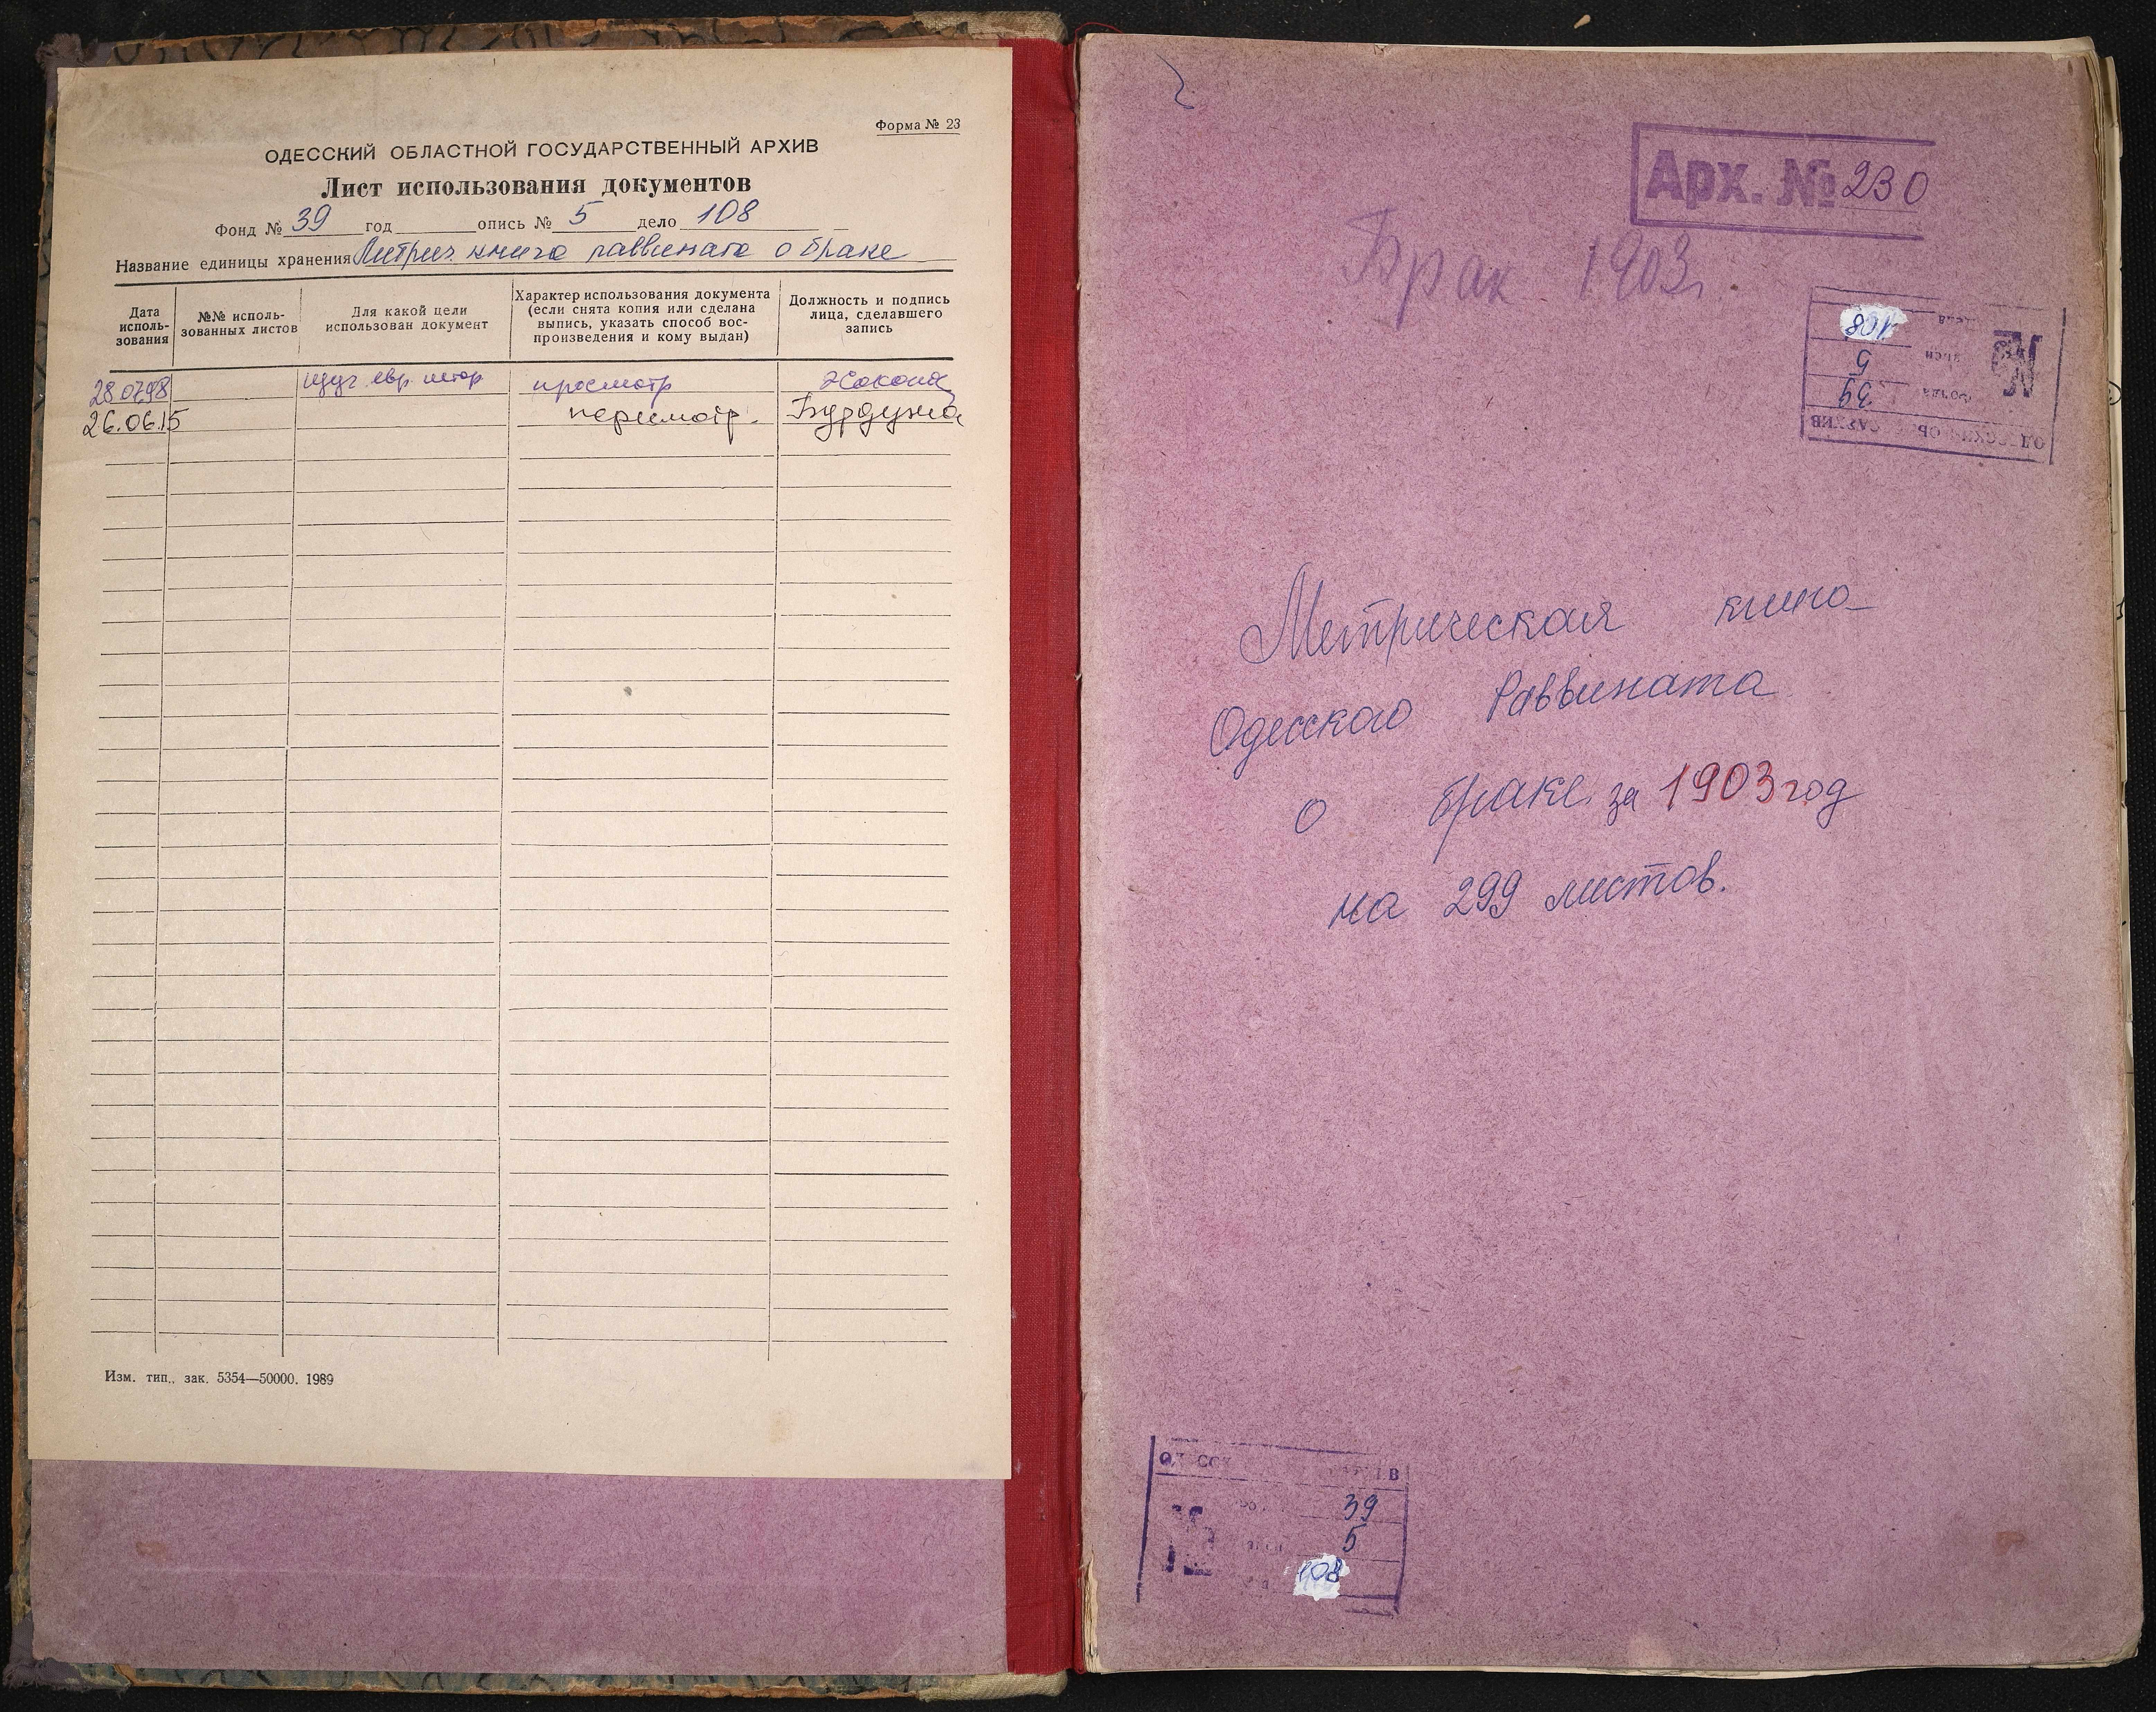 Форма № 23
ОДЕССКИЙ ОБЛАСТНОЙ ГОСУДАРСТВЕННЫЙ АРХИВ
Лист использования документов
Фонд № 39 год опись № 5 дело 108
Название единицы хранения Метрич. книга раввината о браке
Дата исполь-зования
№№ исполь-зованных листов
Для какой цели использован документ
Характер использования документа (если снята копия или сделана выпись, указать способ вос-произведения и кому выдан)
Должность и подпись лица, сделавшего запись
28.07.98 изуч. евр. истор просмотр
26.06.15 пересмотр.
Изм. тип., зак. 5354—50000. 1989
Арх. № 230
Брак 1903 г.
108
5
39
Метрическая книга
Одесского Раввината
о браке за 1903 год
на 299 листов.
39
5
108